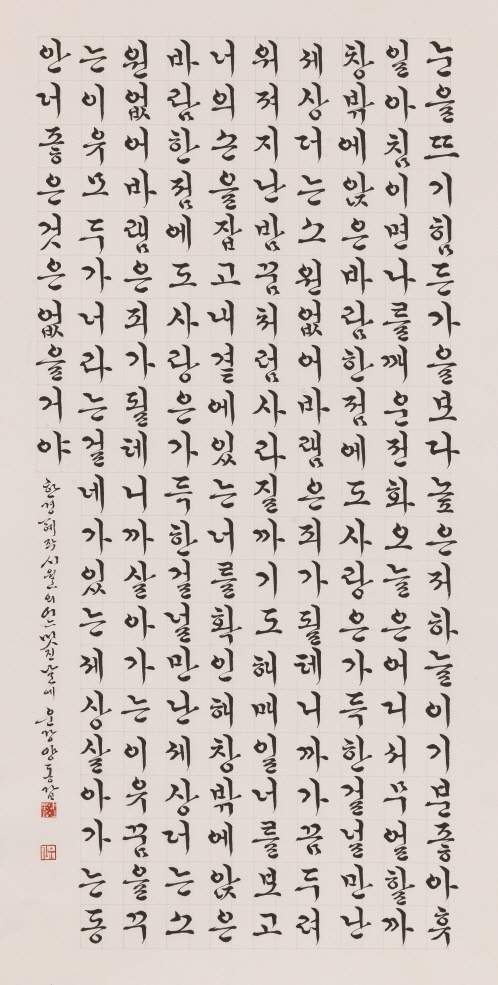 눈을뜨기힘든가을보다높은저하늘이기분좋아휴
일아침이면나를깨운전화오늘은어디서무얼할까
창밖에앉은바람한점에도사랑은가득한걸널만난
세상더는소원없어바램은죄가될테니까가끔두려
워져지난밤꿈처럼사라질까기도해매일너를보고
너의손을잡고내곁에있는너를확인해창밖에앉은
바람한점에도사랑은가득한걸널만난세상더는소
원없어바램은죄가될테니까살아가는이유꿈을꾸
는이유모두가너라는걸네가있는세상살아가는동
안더좋은것은없을거야
한경혜작시월의어느멋진날에 운강